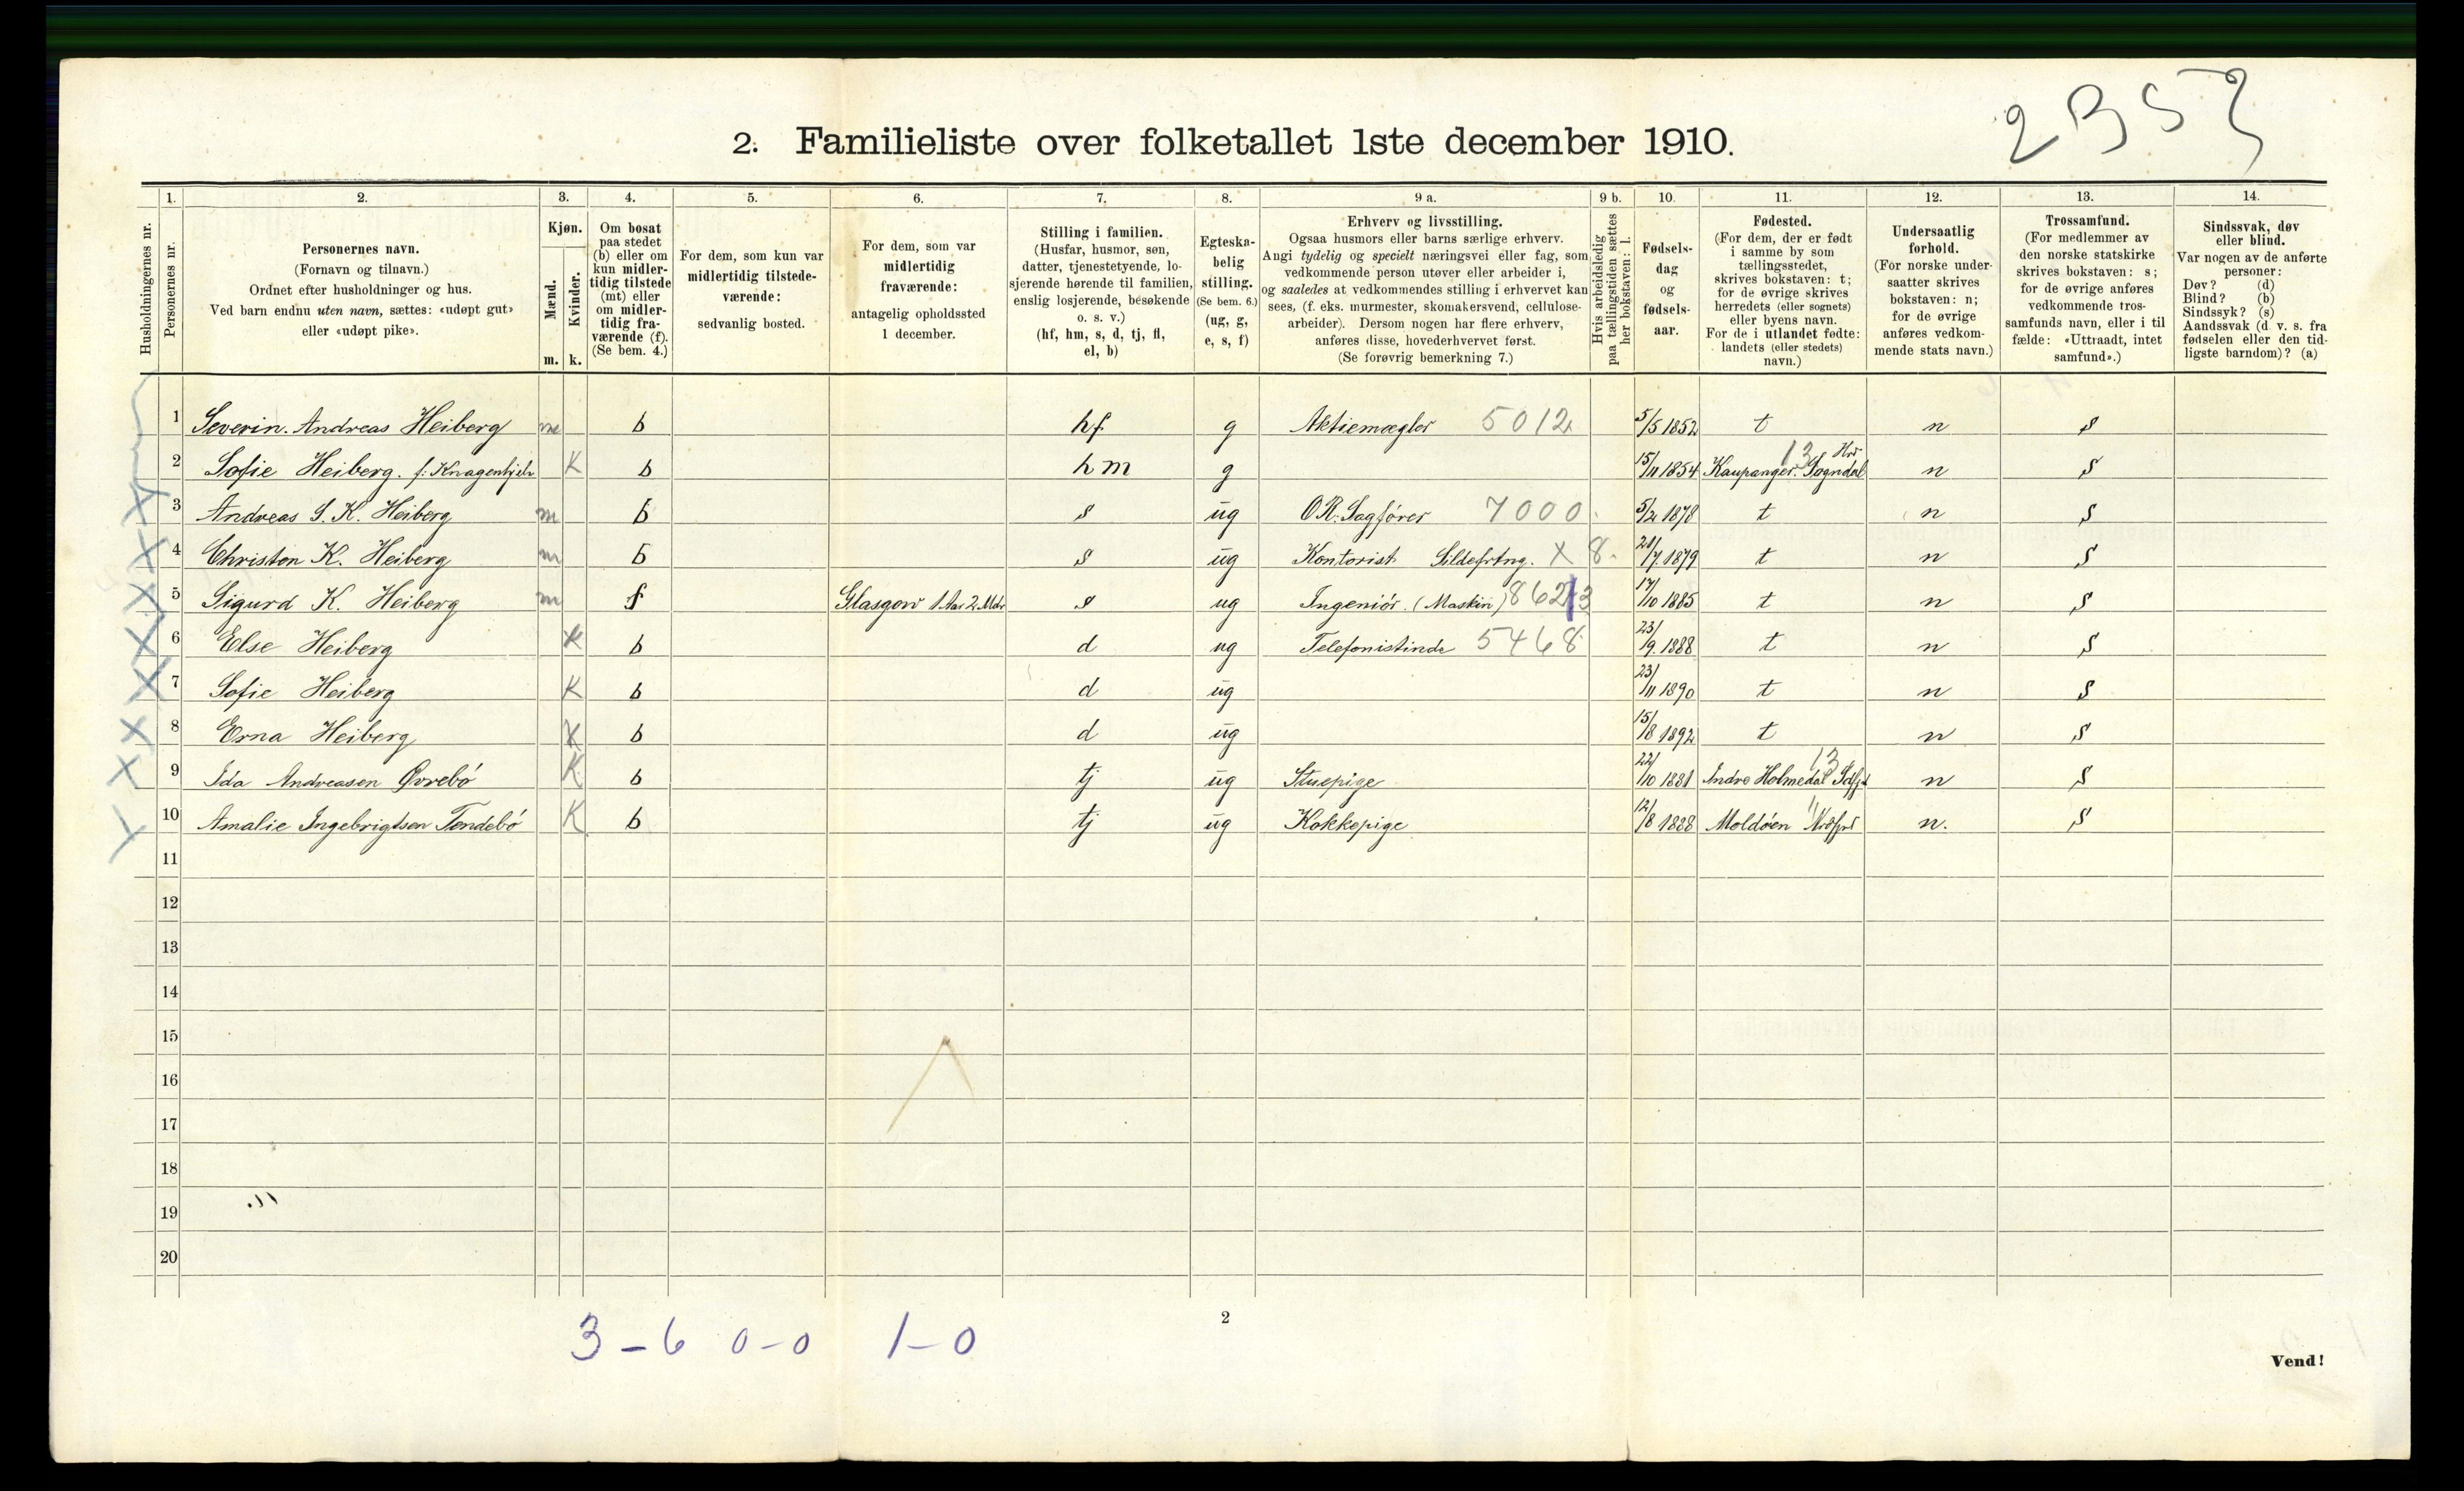 2353
2. Familieliste over folketallet 1ste december 1910.
Husholdningernes nr.
1. Personernes nr.
2. Personernes navn. (Fornavn og tilnavn.) Ordnet efter husholdninger og hus. Ved barn endnu uten navn, sættes: «udøpt gut» eller «udøpt pike».
3. Kjøn. Mænd. m. Kvinder. k.
4. Om bosat paa stedet (b) eller om kun midlertidig tilstede (mt) eller om midlertidig fraværende (f). (Se bem. 4.)
5. For dem, som kun var midlertidig tilstedeværende: sedvanlig bosted.
6. For dem, som var midlertidig fraværende: antagelig opholdssted 1 december.
7. Stilling i familien. (Husfar, husmor, søn, datter, tjenestetyende, losjerende hørende til familien, enslig losjerende, besøkende o. s. v.) (hf, hm, s, d, tj, fl, el, b)
8. Egteskabelig stilling. (Se bem. 6.) (ug, g, e, s, f)
9 a. Erhverv og livsstilling. Ogsaa husmors eller barns særlige erhverv. Angi tydelig og specielt næringsvei eller fag, som vedkommende person utøver eller arbeider i, og saaledes at vedkommendes stilling i erhvervet kan sees, (f. eks. murmester, skomakersvend, cellulosearbeider). Dersom nogen har flere erhverv, anføres disse, hovederhvervet først. (Se forøvrig bemerkning 7.)
9 b. Hvis arbeidsledig paa tællingstiden sættes her bokstaven: l.
10. Fødselsdag og fødselsaar.
11. Fødested. (For dem, der er født i samme by som tællingsstedet, skrives bokstaven: t; for de øvrige skrives herredets (eller sognets) eller byens navn. For de i utlandet fødte: landets (eller stedets) navn.)
12. Undersaatlig forhold. (For norske undersaatter skrives bokstaven: n; for de øvrige anføres vedkommende stats navn.)
13. Trossamfund. (For medlemmer av den norske statskirke skrives bokstaven: s; for de øvrige anføres vedkommende trossamfunds navn, eller i tilfælde: «Uttraadt, intet samfund».)
14. Sindssvak, døv eller blind. Var nogen av de anførte personer: Døv? (d) Blind? (b) Sindssyk? (s) Aandssvak (d. v. s. fra fødselen eller den tidligste barndom)? (a)
1 Severin. Andreas Heiberg m b hf g Aktiemægler 5012 5/5 1852 t n s
2 Sofie Heiberg. f: Knagenhjelm K b hm g 15/11 1854 Kaupanger. Sogndal 13 n s
3 Andreas S. K. Heiberg m b s ug O.R. Sagfører 7000 5/2 1878 t n s
4 Christen K. Heiberg m b s ug Kontorist Sildefrtng. X 8 21/7 1879 t n s
5 Sigurd K. Heiberg m f Glasgow 1 Aar 2 Mdr s ug Ingeniör. (Maskin) 17/10 1885 t n s
6 Else Heiberg K b d ug Telefonistinde 5468 23/9. 1888 t n s
7 Sofie Heiberg K b d ug 23/11 1890 t n s
8 Erna Heiberg K b d ug 15/8 1892 t n s
9 Ida Andreasen Øvrebö K b tj ug Stuepige 22/10 1881 Indre Holmedal 13 n s
10 Amalie Ingebrigtsen Tendebö K b tj ug Kokkepige 12/8 1888 Moldöen n. s
11
12
13
14
15
16
17
18
19
20
3 - 6 0 - 0 1 - 0
2
Vend!